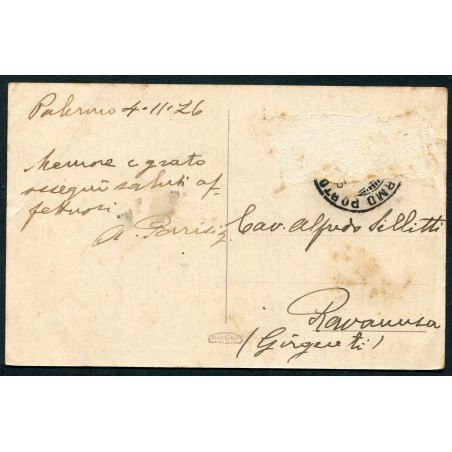 Palermo 4·11·26
Memore e grato
ossequi saluti af-
fettuosi.
A. Parisi
Cav. Alfredo Sillitti
Ravanusa
(Girgenti)
RMO PORTO